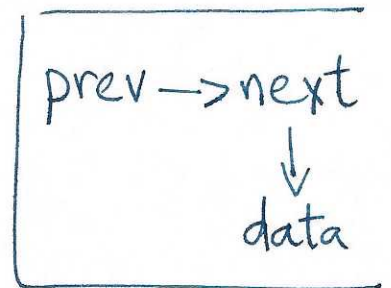 prev->next
↓
data